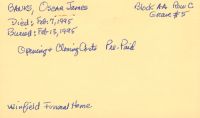 Banks, Oscar James Block AA Row C
Died: Feb. 7, 1995 Grave #5
Buried: Feb. 13, 1995
Opening & Closing Costs Pre-Paid
Winfield Funeral Home